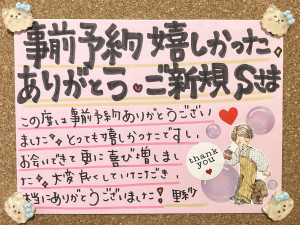 事前予約嬉しかった
ありがとう・ご新規Sさま
この度は事前予約ありがとうござい
ました とっても嬉しかったですし
お会いできて更に喜び増しまし
た 大変良くしていただき
本当にありがとうございました! 里紗
thank
you